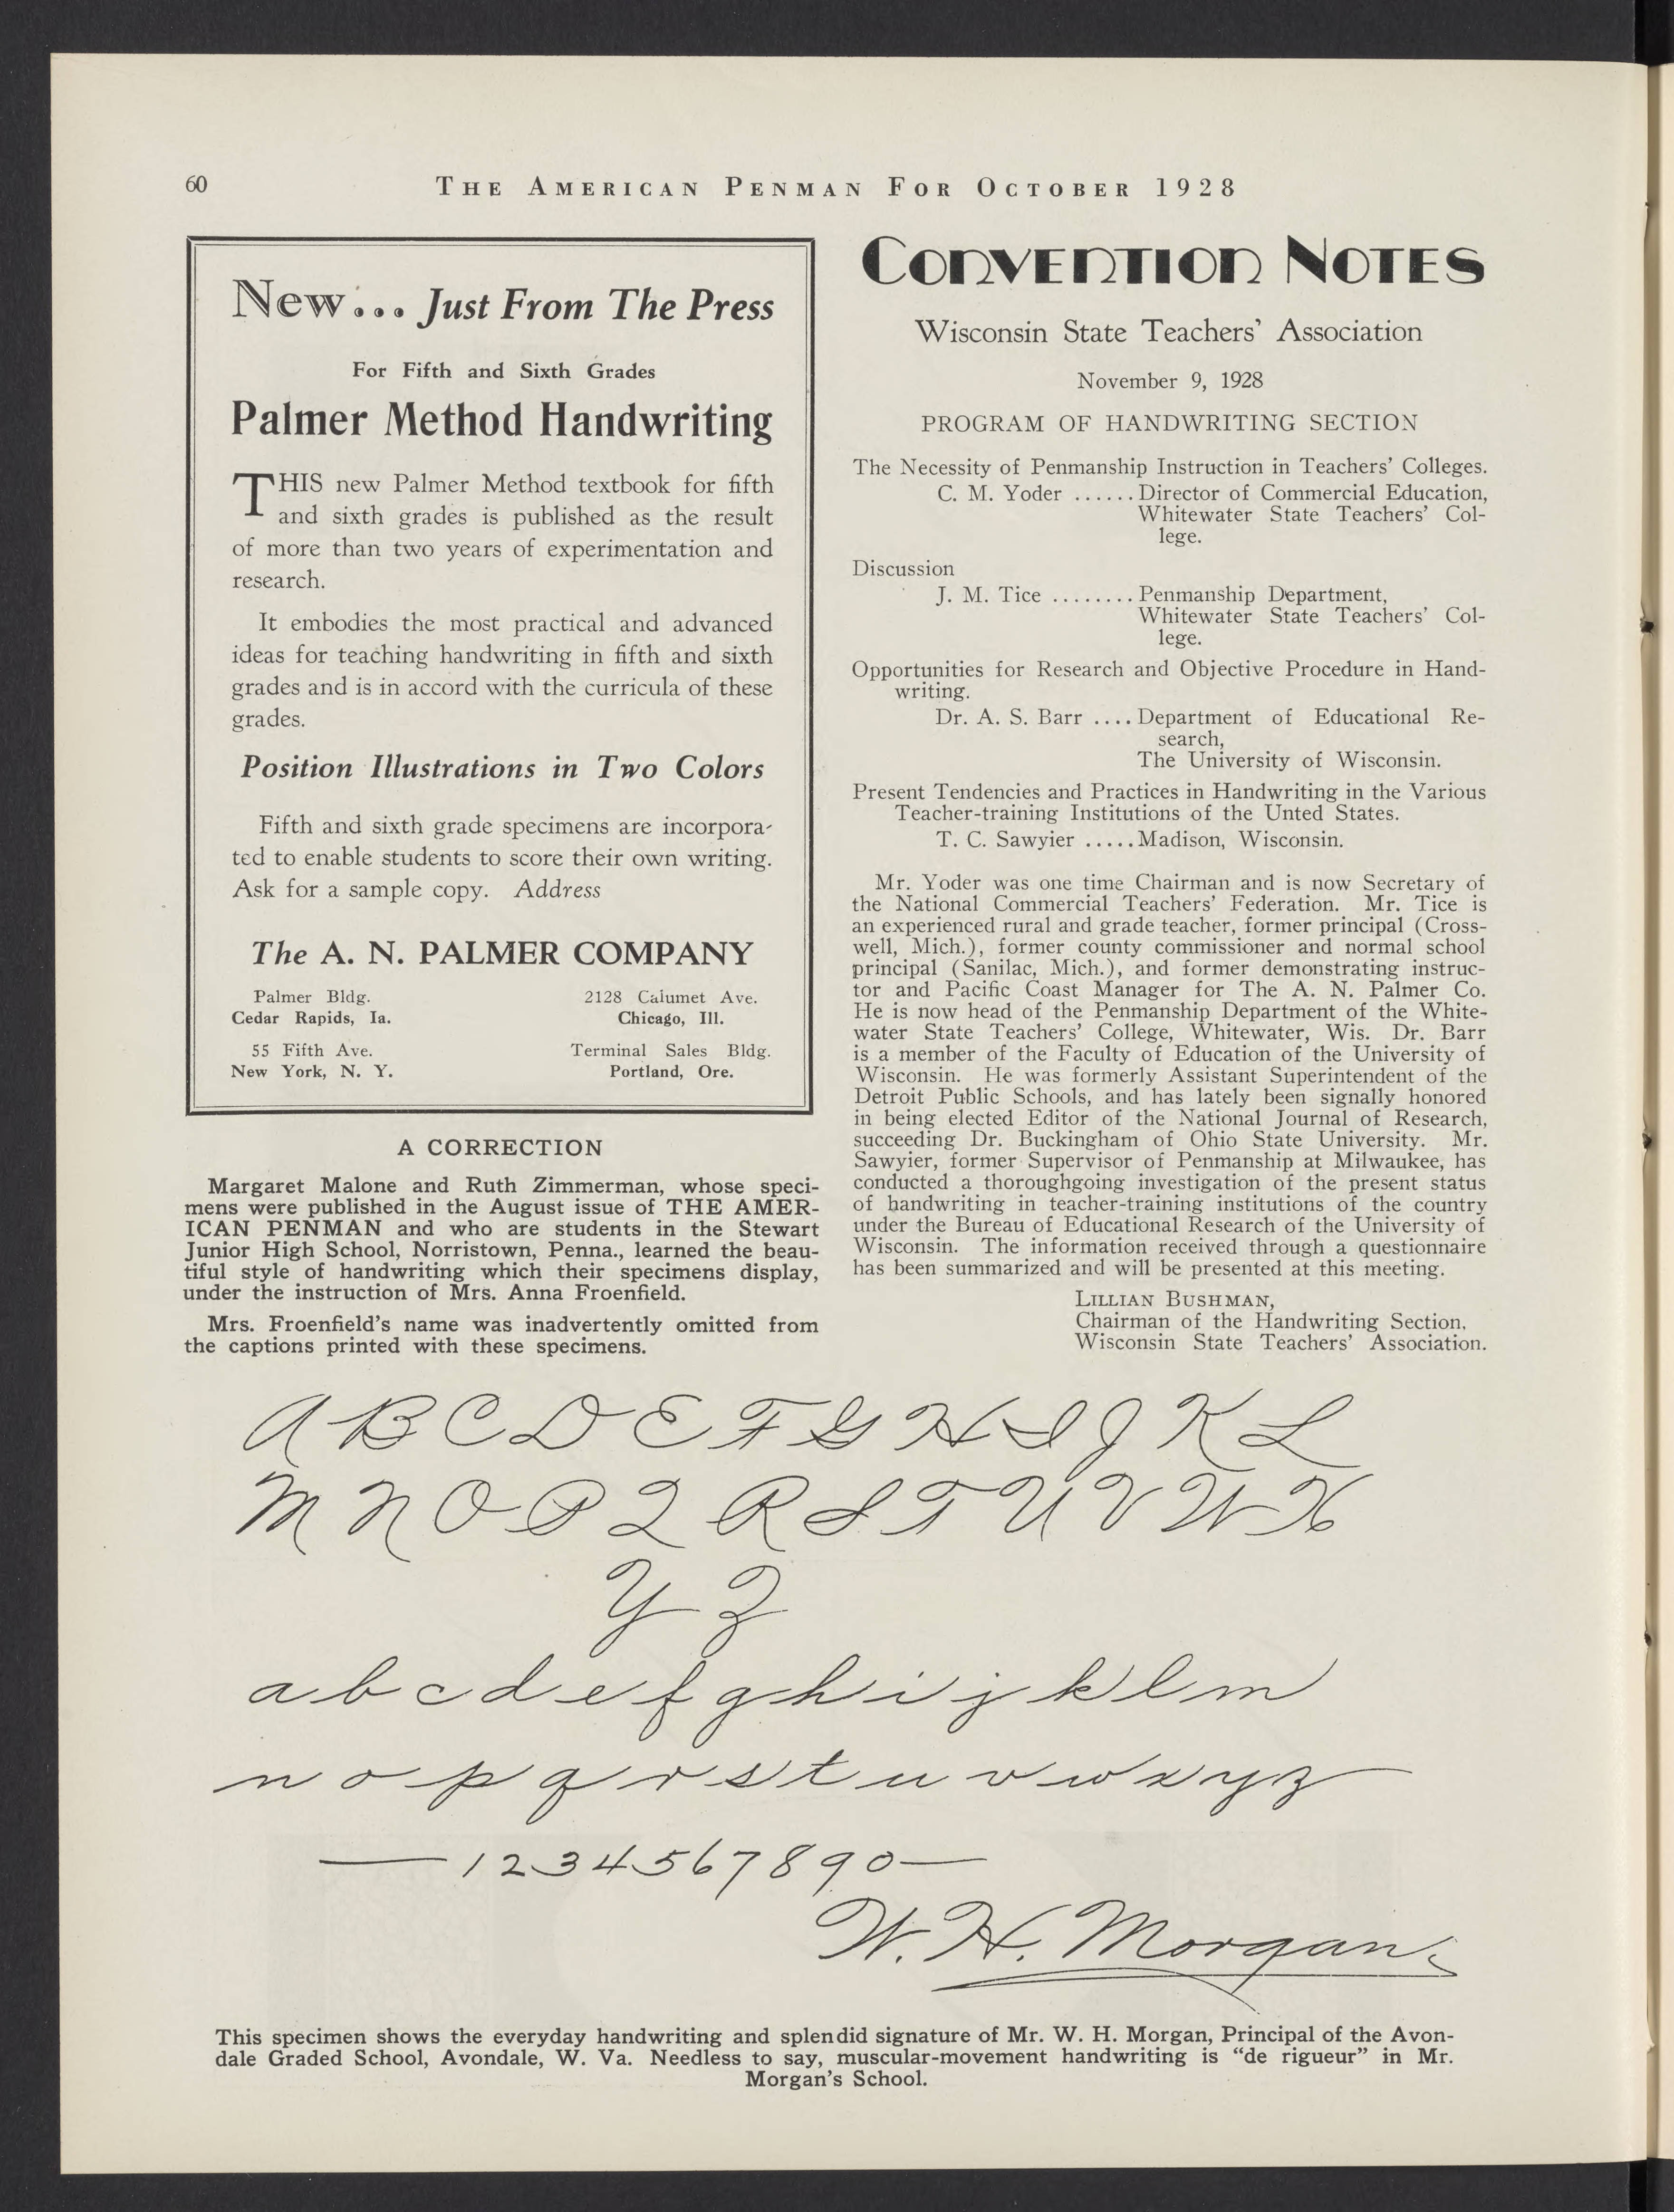 60
THE AMERICAN PENMAN FOR OCTOBER 1928
New... Just From The Press
For Fifth and Sixth Grades
Palmer Method Handwriting
THIS new Palmer Method textbook for fifth
and sixth grades is published as the result
of more than two years of experimentation and
research.
It embodies the most practical and advanced
ideas for teaching handwriting in fifth and sixth
grades and is in accord with the curricula of these
grades.
Position Illustrations in Two Colors
Fifth and sixth grade specimens are incorpora-
ted to enable students to score their own writing.
Ask for a sample copy. Address
The A. N. PALMER COMPANY
Palmer Bldg.
Cedar Rapids, Ia.
2128 Calumet Ave.
Chicago, Ill.
55 Fifth Ave.
New York, N. Y.
Terminal Sales Bldg.
Portland, Ore.
A CORRECTION
Margaret Malone and Ruth Zimmerman, whose speci-
mens were published in the August issue of THE AMER-
ICAN PENMAN and who are students in the Stewart
Junior High School, Norristown, Penna., learned the beau-
tiful style of handwriting which their specimens display,
under the instruction of Mrs. Anna Froenfield.
Mrs. Froenfield's name was inadvertently omitted from
the captions printed with these specimens.
CONVENTION NOTES
Wisconsin State Teachers' Association
November 9, 1928
PROGRAM OF HANDWRITING SECTION
The Necessity of Penmanship Instruction in Teachers' Colleges.
C. M. Yoder ...... Director of Commercial Education,
Whitewater State Teachers' Col-
lege.
Discussion
J. M. Tice ........ Penmanship Department,
Whitewater State Teachers' Col-
lege.
Opportunities for Research and Objective Procedure in Hand-
writing.
Dr. A. S. Barr .... Department of Educational Re-
search,
The University of Wisconsin.
Present Tendencies and Practices in Handwriting in the Various
Teacher-training Institutions of the Unted States.
T. C. Sawyier ..... Madison, Wisconsin.
Mr. Yoder was one time Chairman and is now Secretary of
the National Commercial Teachers' Federation. Mr. Tice is
an experienced rural and grade teacher, former principal (Cross-
well, Mich.), former county commissioner and normal school
principal (Sanilac, Mich.), and former demonstrating instruc-
tor and Pacific Coast Manager for The A. N. Palmer Co.
He is now head of the Penmanship Department of the White-
water State Teachers' College, Whitewater, Wis. Dr. Barr
is a member of the Faculty of Education of the University of
Wisconsin. He was formerly Assistant Superintendent of the
Detroit Public Schools, and has lately been signally honored
in being elected Editor of the National Journal of Research,
succeeding Dr. Buckingham of Ohio State University. Mr.
Sawyier, former Supervisor of Penmanship at Milwaukee, has
conducted a thoroughgoing investigation of the present status
of handwriting in teacher-training institutions of the country
under the Bureau of Educational Research of the University of
Wisconsin. The information received through a questionnaire
has been summarized and will be presented at this meeting.
LILLIAN BUSHMAN,
Chairman of the Handwriting Section,
Wisconsin State Teachers' Association.
A B C D E F G H I J K L
M N O P Q R S T U V W X
Y Z
a b c d e f g h i j k l m
n o p q r s t u v w x y z
— 1 2 3 4 5 6 7 8 9 0 —
W. H. Morgan
This specimen shows the everyday handwriting and splendid signature of Mr. W. H. Morgan, Principal of the Avon-
dale Graded School, Avondale, W. Va. Needless to say, muscular-movement handwriting is “de rigueur” in Mr.
Morgan's School.